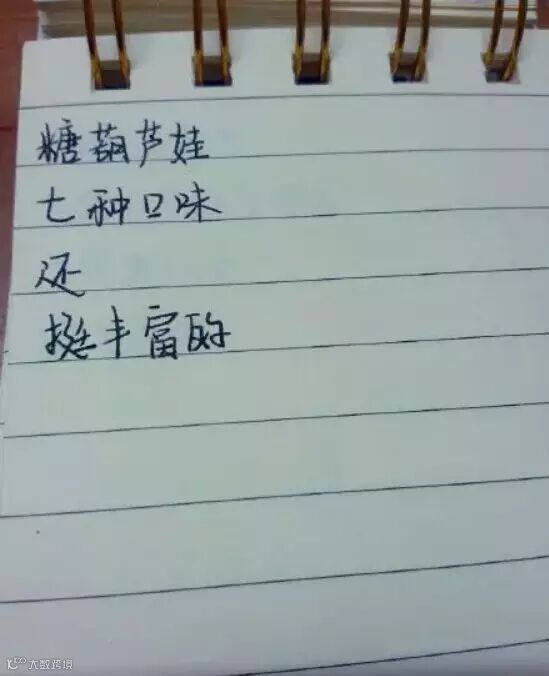 糖葫芦娃
七种口味
还
挺丰富的
大数跨境